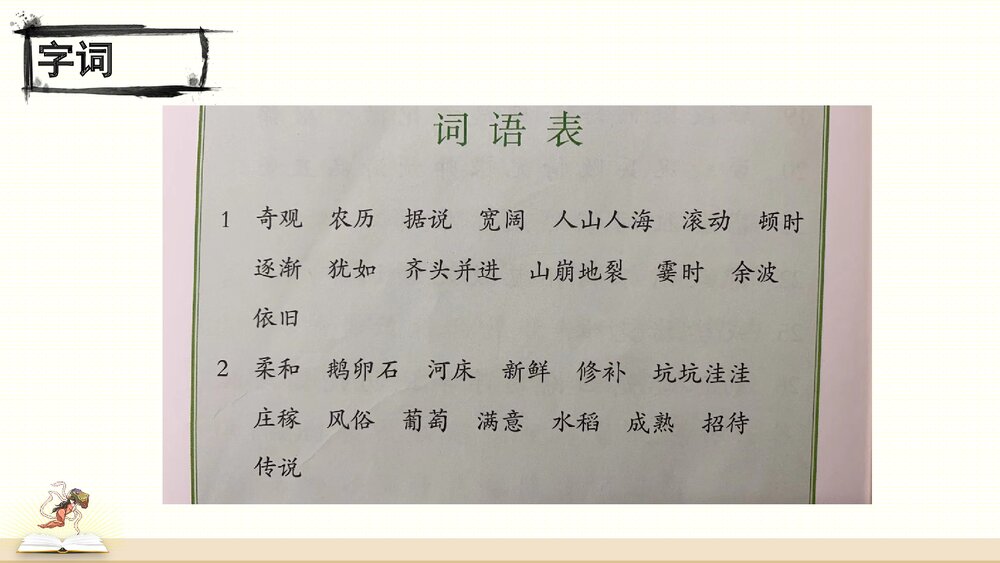 字词
词语表
1 奇观 农历 据说 宽阔 人山人海 滚动 顿时
逐渐 犹如 齐头并进 山崩地裂 霎时 余波
依旧
2 柔和 鹅卵石 河床 新鲜 修补 坑坑洼洼
庄稼 风俗 葡萄 满意 水稻 成熟 招待
传说